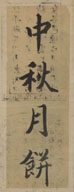 中秋月餅